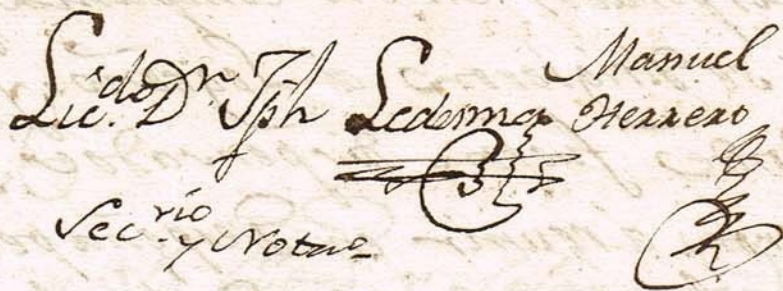 Lic.do Dn Jph Ledesma
Manuel
Herrero
Sec.rio y Nota.o